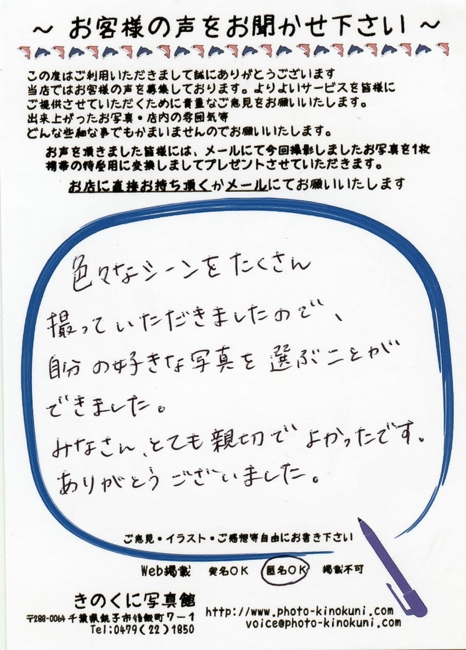 ～ お客様の声をお聞かせ下さい ～
この度はご利用いただきまして誠にありがとうございます
当店ではお客様の声を募集しております。よりよいサービスを皆様に
ご提供させていただくために貴重なご意見をお願いいたします。
出来上がったお写真・店内の雰囲気等
どんな些細な事でもかまいませんのでお願いいたします。
お声を頂きました皆様には、メールにて今回撮影しましたお写真を1枚
携帯の待受用に変換しましてプレゼントさせていただきます。
お店に直接お持ち頂くかメールにてお願いいたします
色々なシーンをたくさん
撮っていただきましたので、
自分の好きな写真を選ぶことが
できました。
みなさん、とても親切でよかったです。
ありがとうございました。
ご意見・イラスト・ご感想等自由にお書き下さい
Web掲載 実名OK 匿名OK 掲載不可
きのくに写真館
〒288-0064 千葉県銚子市 町7-1
Tel:0479(22)1850
http://www.photo-kinokuni.com/
voice@photo-kinokuni.com